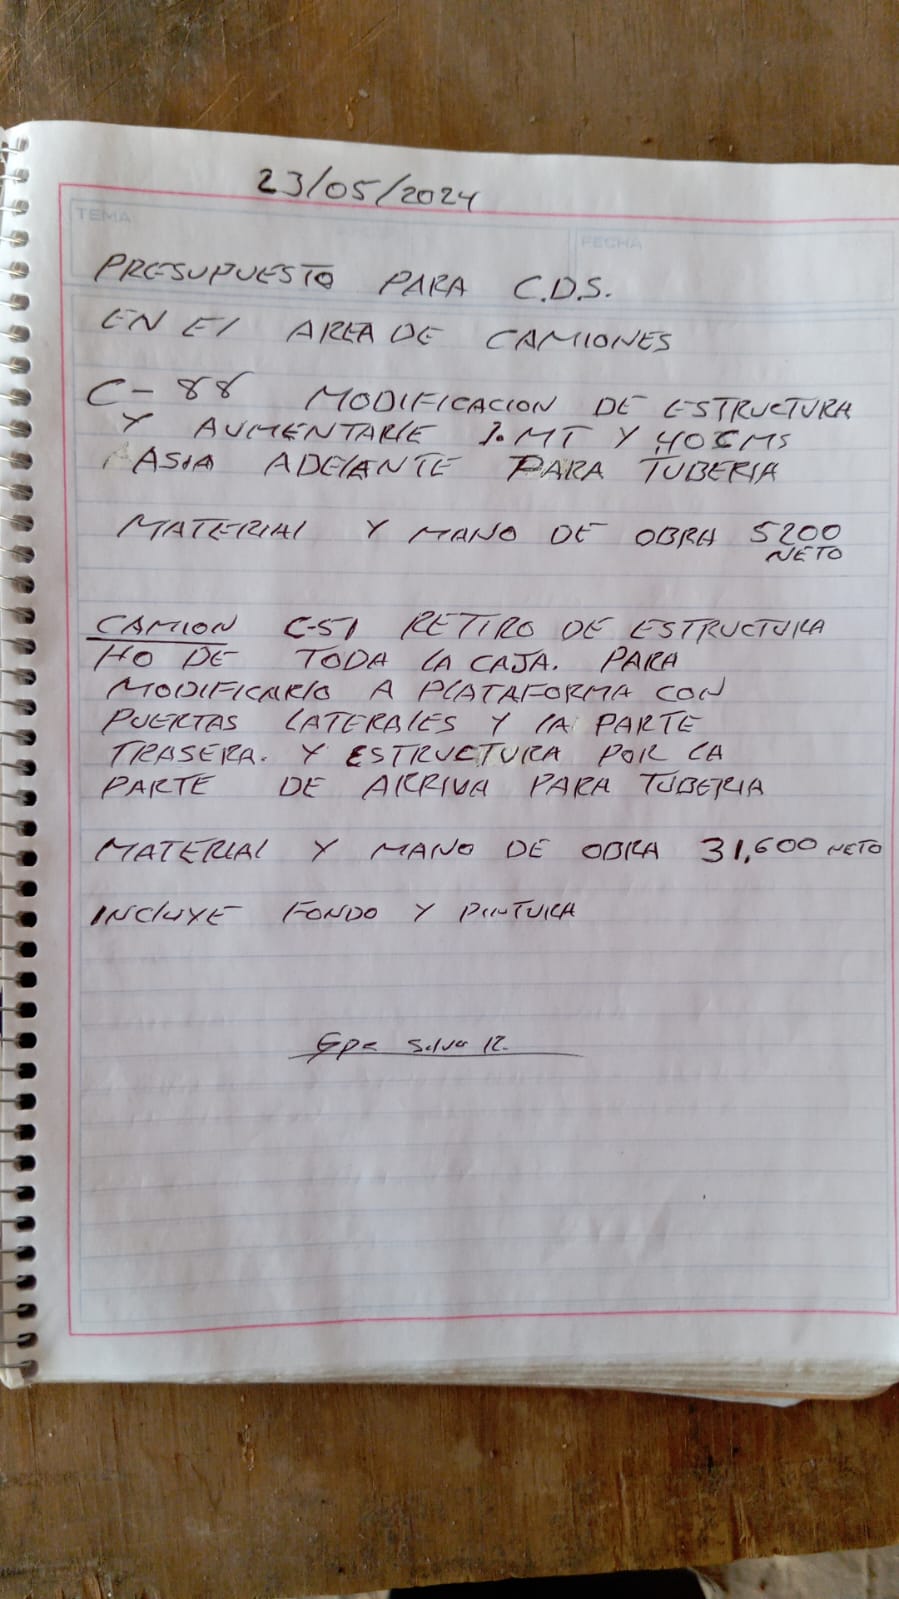 23/05/2024
TEMA
FECHA
PRESUPUESTO PARA C.D.S.
EN El AREA DE CAMIONES
C-88 MODIFICACION DE ESTRUCTURA
Y AUMENTARlE 1.MT Y 40 CMS
ASIA ADElANTE PARA TUBERIA
MATERIAl Y MANO DE OBRA 5200
NETO
CAMION C-51 RETIRO DE ESTRUCTURA
DE TODA LA CAJA. PARA
MODIFICARlO A PlATAFORMA CON
PUERTAS LATERAlES Y lA PARTE
TRASERA. Y ESTRUCTURA POR LA
PARTE DE ARRIVA PARA TUBERIA
MATERIAl Y MANO DE OBRA 31,600 NETO
INClUYE FONDO Y PINTURA
Gpe Silva R.